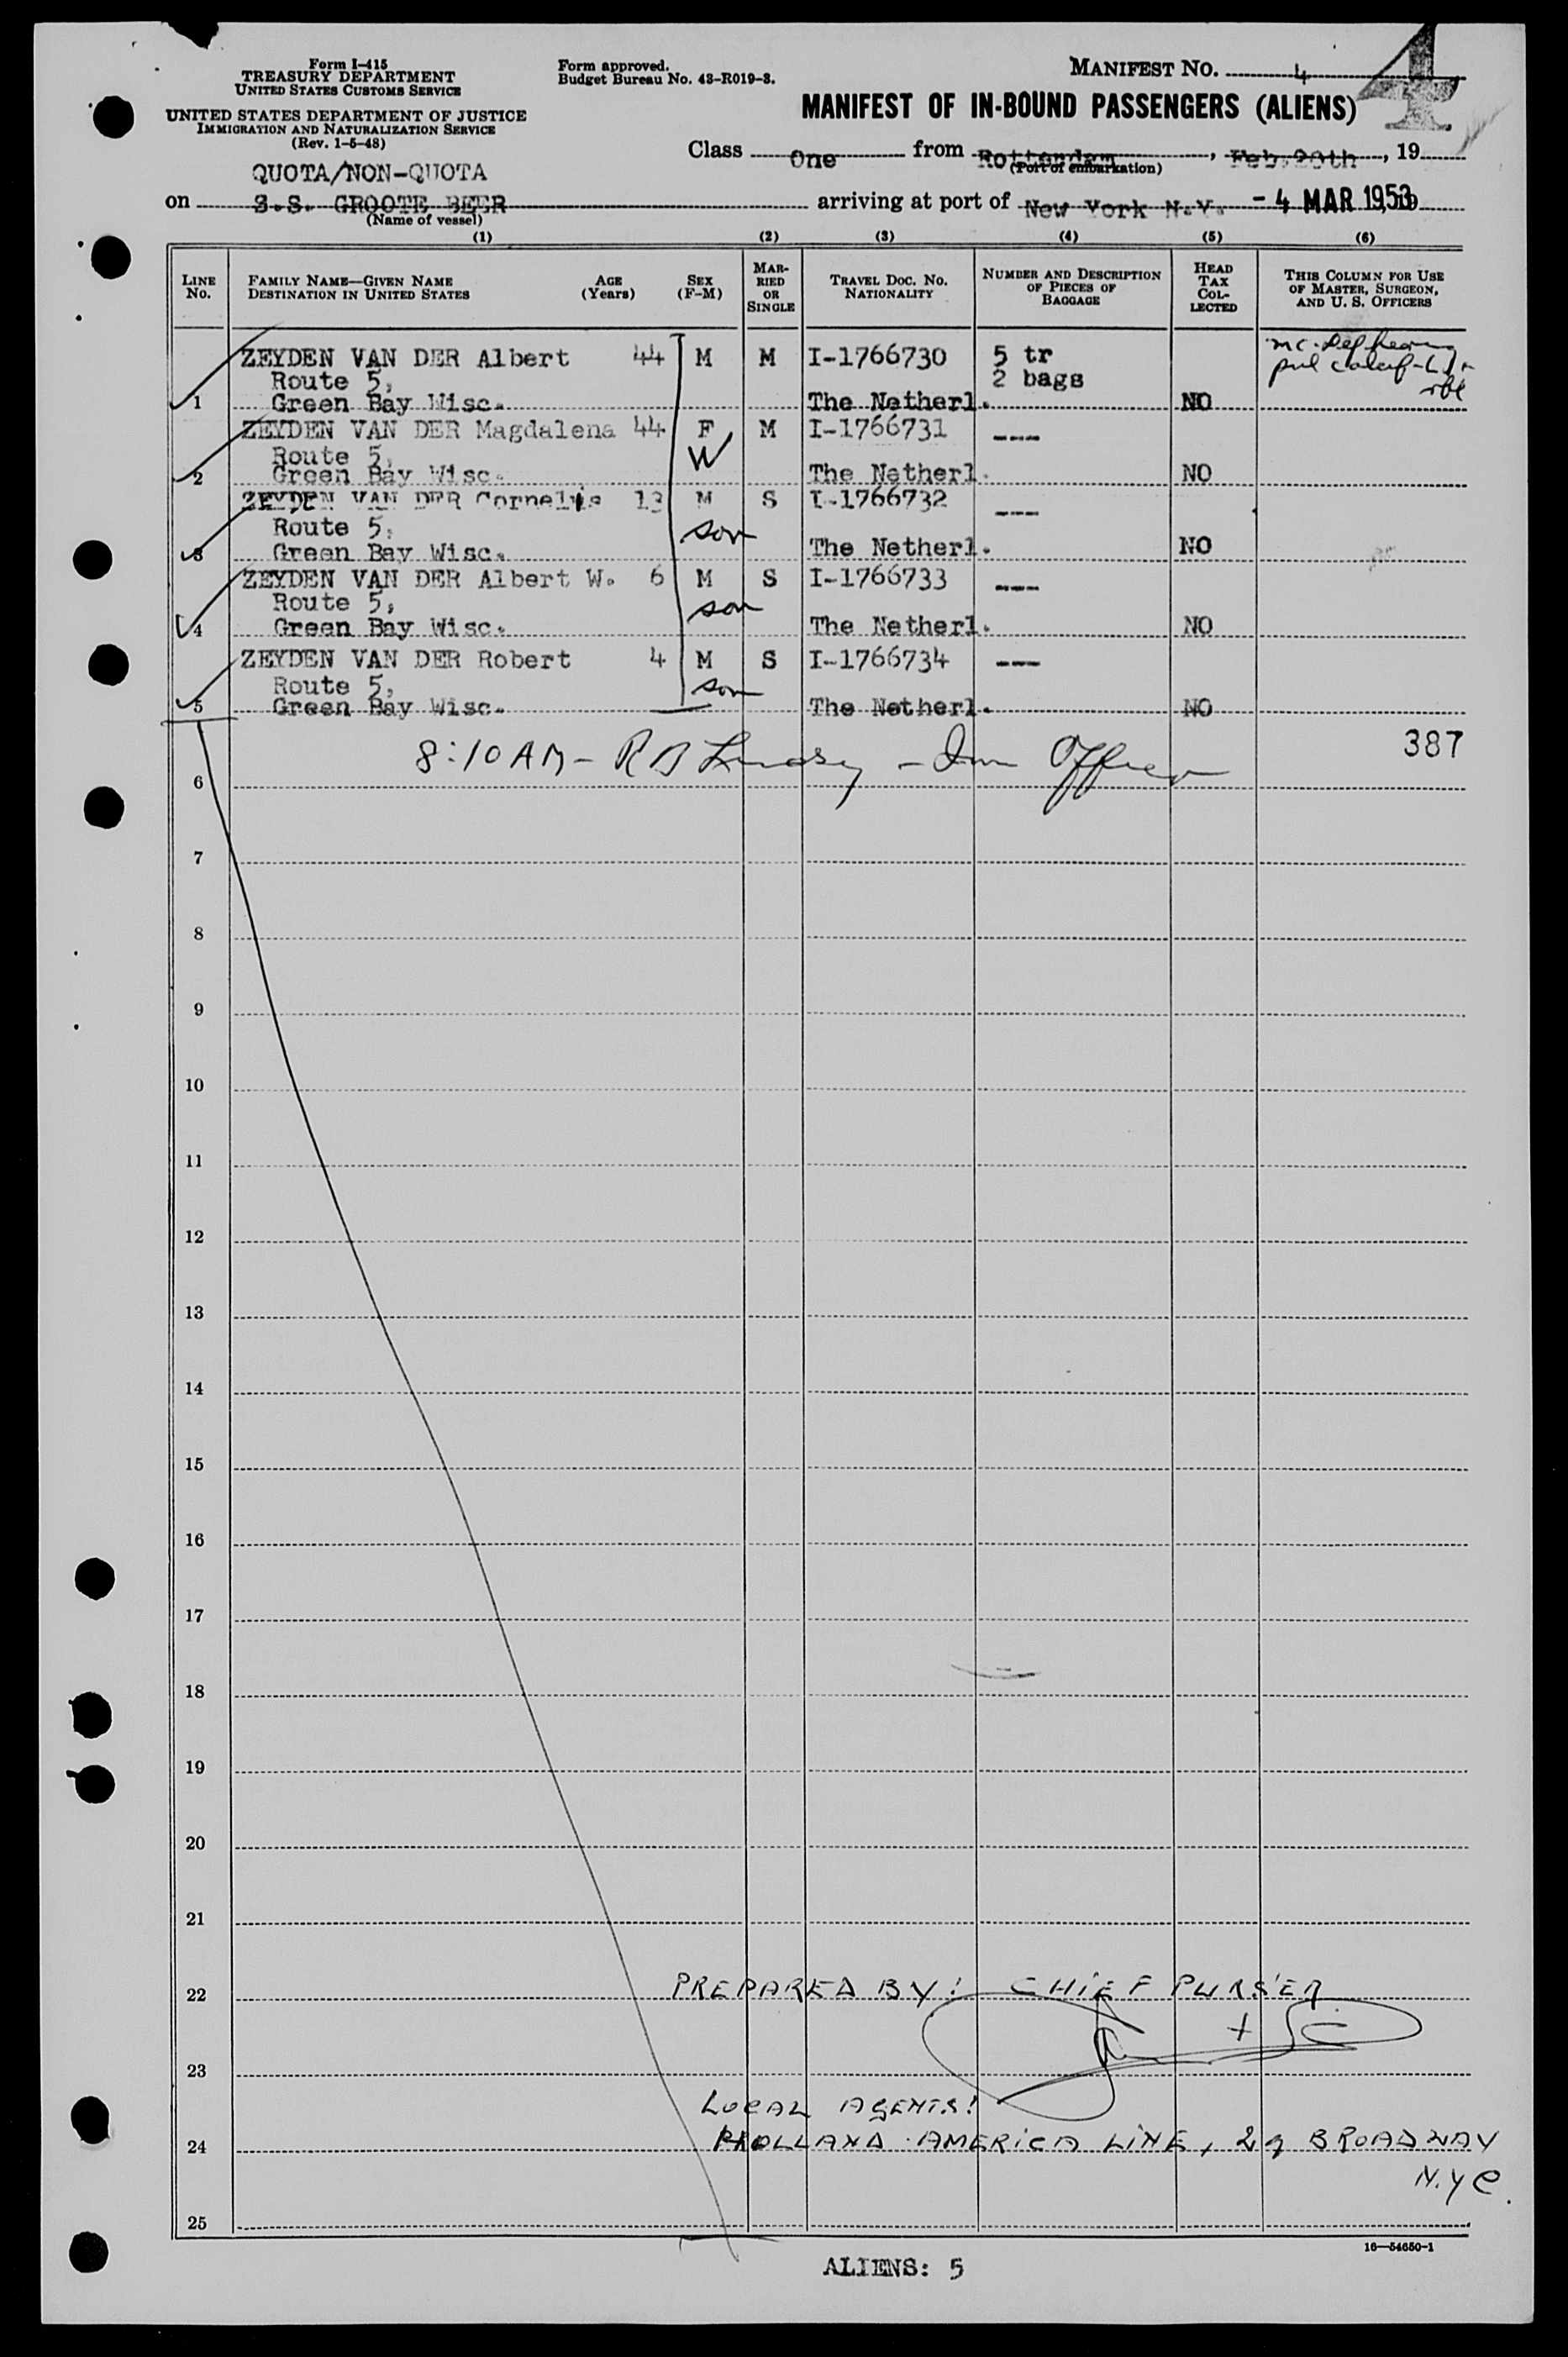 Form I-415
TREASURY DEPARTMENT
UNITED STATES CUSTOMS SERVICE
UNITED STATES DEPARTMENT OF JUSTICE
IMMIGRATION AND NATURALIZATION SERVICE
(Rev. 1-5-48)
Form approved.
Budget Bureau No. 43-R019-3.
MANIFEST NO. 4
4
MANIFEST OF IN-BOUND PASSENGERS (ALIENS)
Class One from Rotterdam, Feb. 20th, 19
(Port of embarkation)
QUOTA/NON-QUOTA
on S.S. GROOTE BEER arriving at port of New York N.Y. - 4 MAR 1953, 19
(Name of vessel)
(1) (2) (3) (4) (5) (6)
LINE No. FAMILY NAME—GIVEN NAME DESTINATION IN UNITED STATES AGE (Years) SEX (F-M) MARRIED OR SINGLE TRAVEL DOC. NO. NATIONALITY NUMBER AND DESCRIPTION OF PIECES OF BAGGAGE HEAD TAX COLLECTED THIS COLUMN FOR USE OF MASTER, SURGEON, AND U. S. OFFICERS
ZEYDEN VAN DER Albert 44 M M I-1766730 5 tr
Route 5, 2 bags
1 Green Bay Wisc. The Netherl. NO
ZEYDEN VAN DER Magdalena 44 F M I-1766731 ---
Route 5, W
2 Green Bay Wisc. The Netherl. NO
ZEYDEN VAN DER Cornelis 13 M S I-1766732 ---
Route 5, son
3 Green Bay Wisc. The Netherl. NO
ZEYDEN VAN DER Albert W. 6 M S I-1766733 ---
Route 5, son
4 Green Bay Wisc. The Netherl. NO
ZEYDEN VAN DER Robert 4 M S I-1766734 ---
Route 5, son
5 Green Bay Wisc. The Netherl. NO
387
8:10 AM - R B Lindsy - Imm Officer
6
7
8
9
10
11
12
13
14
15
16
17
18
19
20
21
PREPARED BY: CHIEF PURSER
22
23
LOCAL AGENTS:
24 HOLLAND AMERICA LINE, 29 BROADWAY
N.Y C.
25
16—54650-1
ALIENS: 5